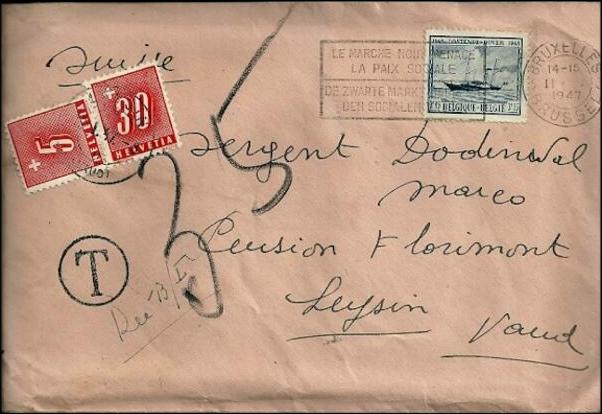 Suisse
LE MARCHE NOIR MENACE
LA PAIX SOCIALE
DE ZWARTE MARKT
DEN SOCIALEN
1846 OOSTENDE-DOVER 1946
BELGIQUE-BELGIË
BRUXELLES
14-15
II
1947
BRUSSEL
+ 5
HELVETIA
+ 30
HELVETIA
35
Sergent Dodinval
Marco
Pension Florimont
Leysin Vaud
T